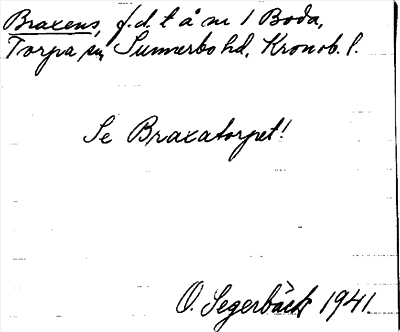 Braxens, f.d. t å nr 1 Boda,
Torpa sn, Sunnerbo hd, Kronob. l.
Se Braxatorpet!
O. Segerbäck 1941.